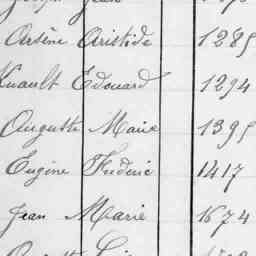 Jean
Arsène Aristide 1285
Edouard 1294
Auguste Marie 1395
Eugène Frédéric 1417
Jean Marie 1674